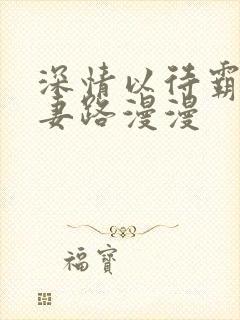 深情以待霸
妻路漫漫
福寶